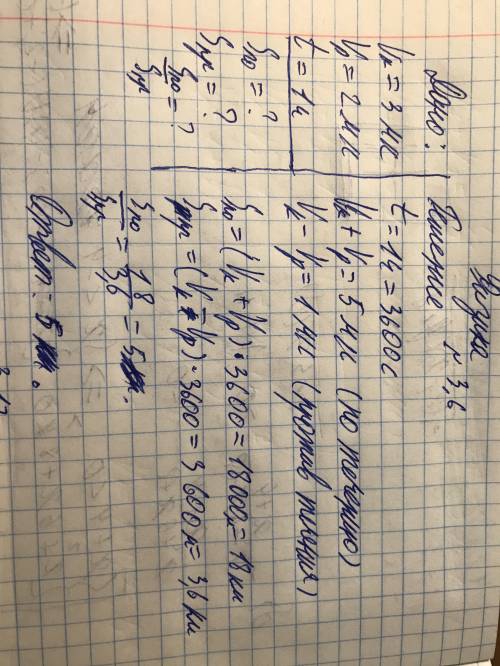 Физика
№ 3,6
Дано:
Vк = 3 м/с
Vр = 2 м/с
t = 1ч
Sпо = ?
Sпр = ?
Sпо/Sпр = ?
Решение
t = 1ч = 3600с
Vк + Vр = 5 м/с (по течению)
Vк - Vр = 1 м/с (против течения)
Sпо = (Vк + Vр) · 3600 = 18000м = 18 км
Sпр = (Vк - Vр) · 3600 = 3600м = 3,6 км
Sпо/Sпр = 18/3,6 = 5
Ответ: 5